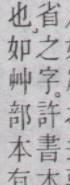 省之字。許書本
也。如艸部本有